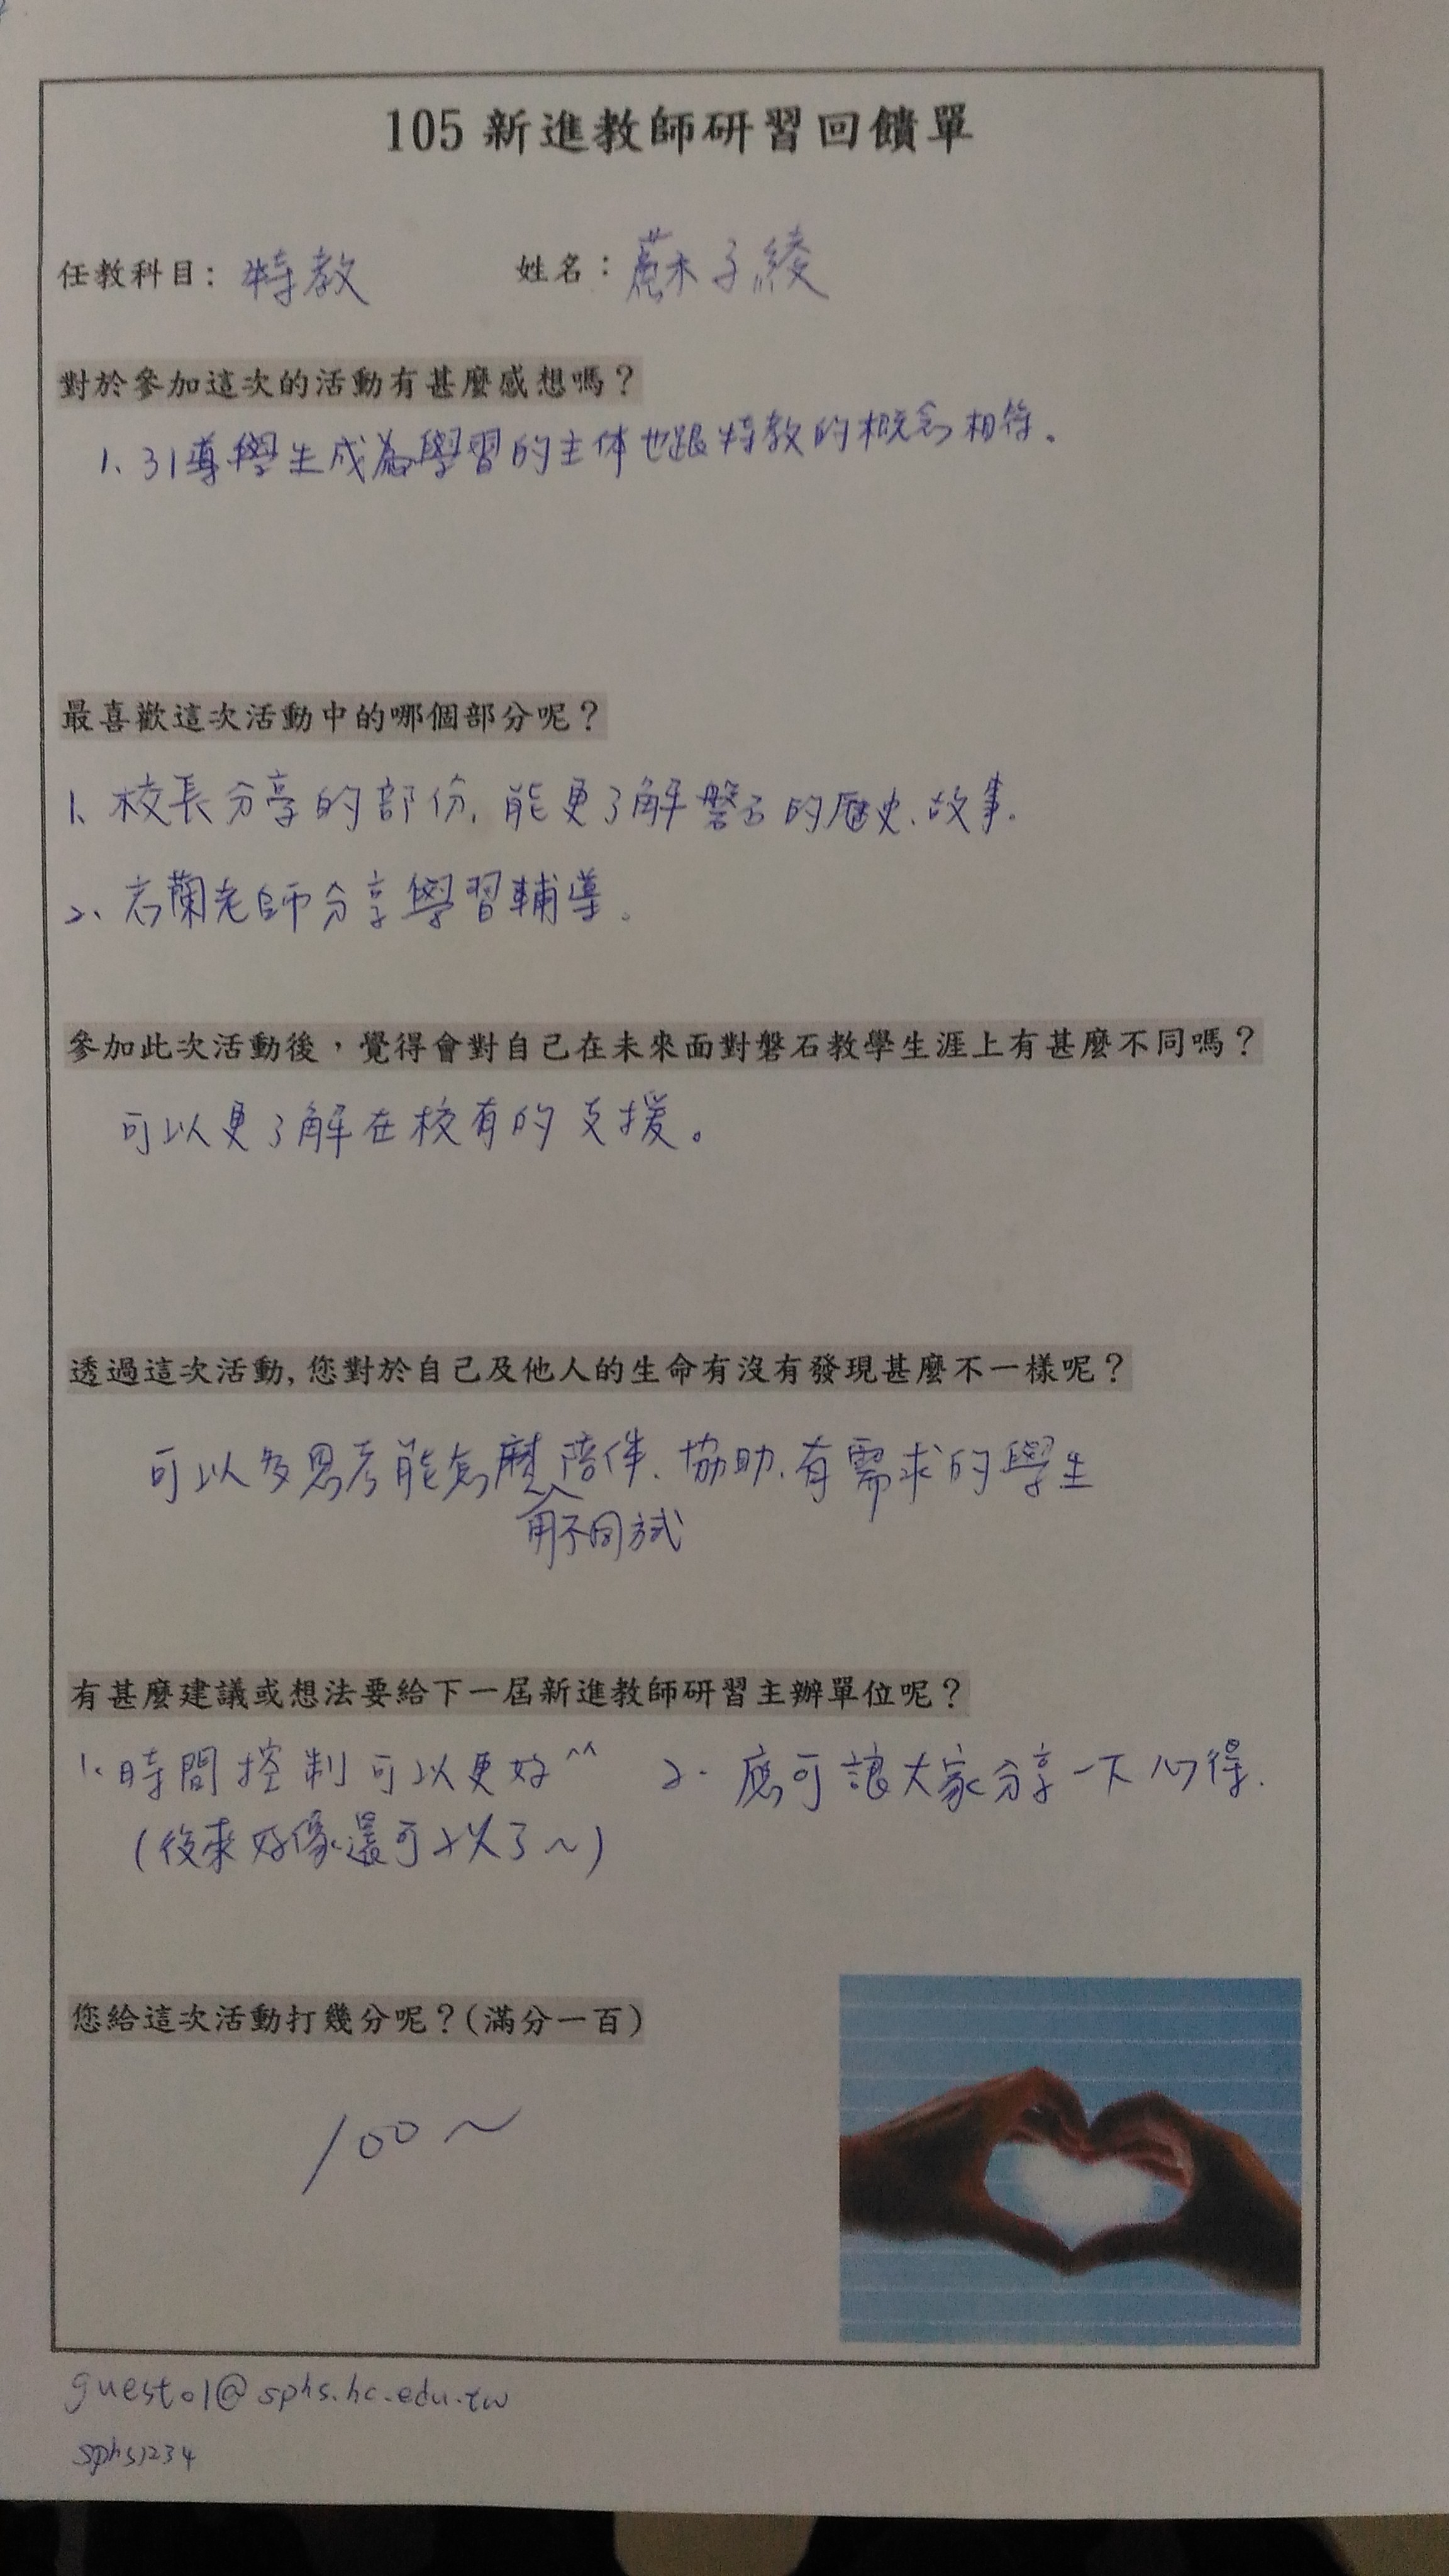 105 新進教師研習回饋單
任教科目: 特教 姓名: 蘇子綾
對於參加這次的活動有甚麼感想嗎?
1、引導學生成為學習的主体也跟特教的概念相符。
最喜歡這次活動中的哪個部分呢?
1、校長分享的部份,能更了解磐石的歷史、故事.
2、若蘭老師分享學習輔導。
參加此次活動後,覺得會對自己在未來面對磐石教學生涯上有甚麼不同嗎?
可以更了解在校有的支援。
透過這次活動,您對於自己及他人的生命有沒有發現甚麼不一樣呢?
可以多思考能怎麼陪伴、協助、有需求的學生
用不同方式
有甚麼建議或想法要給下一屆新進教師研習主辦單位呢?
1.時間控制可以更好^^ 2.應可讓大家分享一下心得.
(後來好像還可以了~)
您給這次活動打幾分呢?(滿分一百)
100~
guest01@sphs.hc.edu.tw
sphs1234